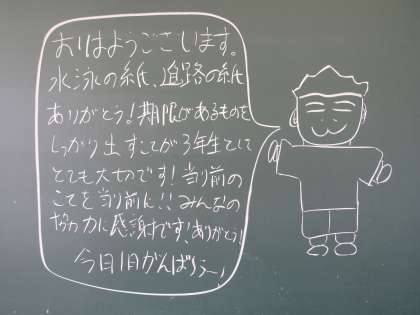 おはようございます。
水泳の紙、進路の紙
ありがとう!期限があるものを
しっかり出すことが3年生として
とても大切です!当り前の
ことを当り前に!!みんなの
協力に感謝です!ありがとう!
今日1日がんばろう〜